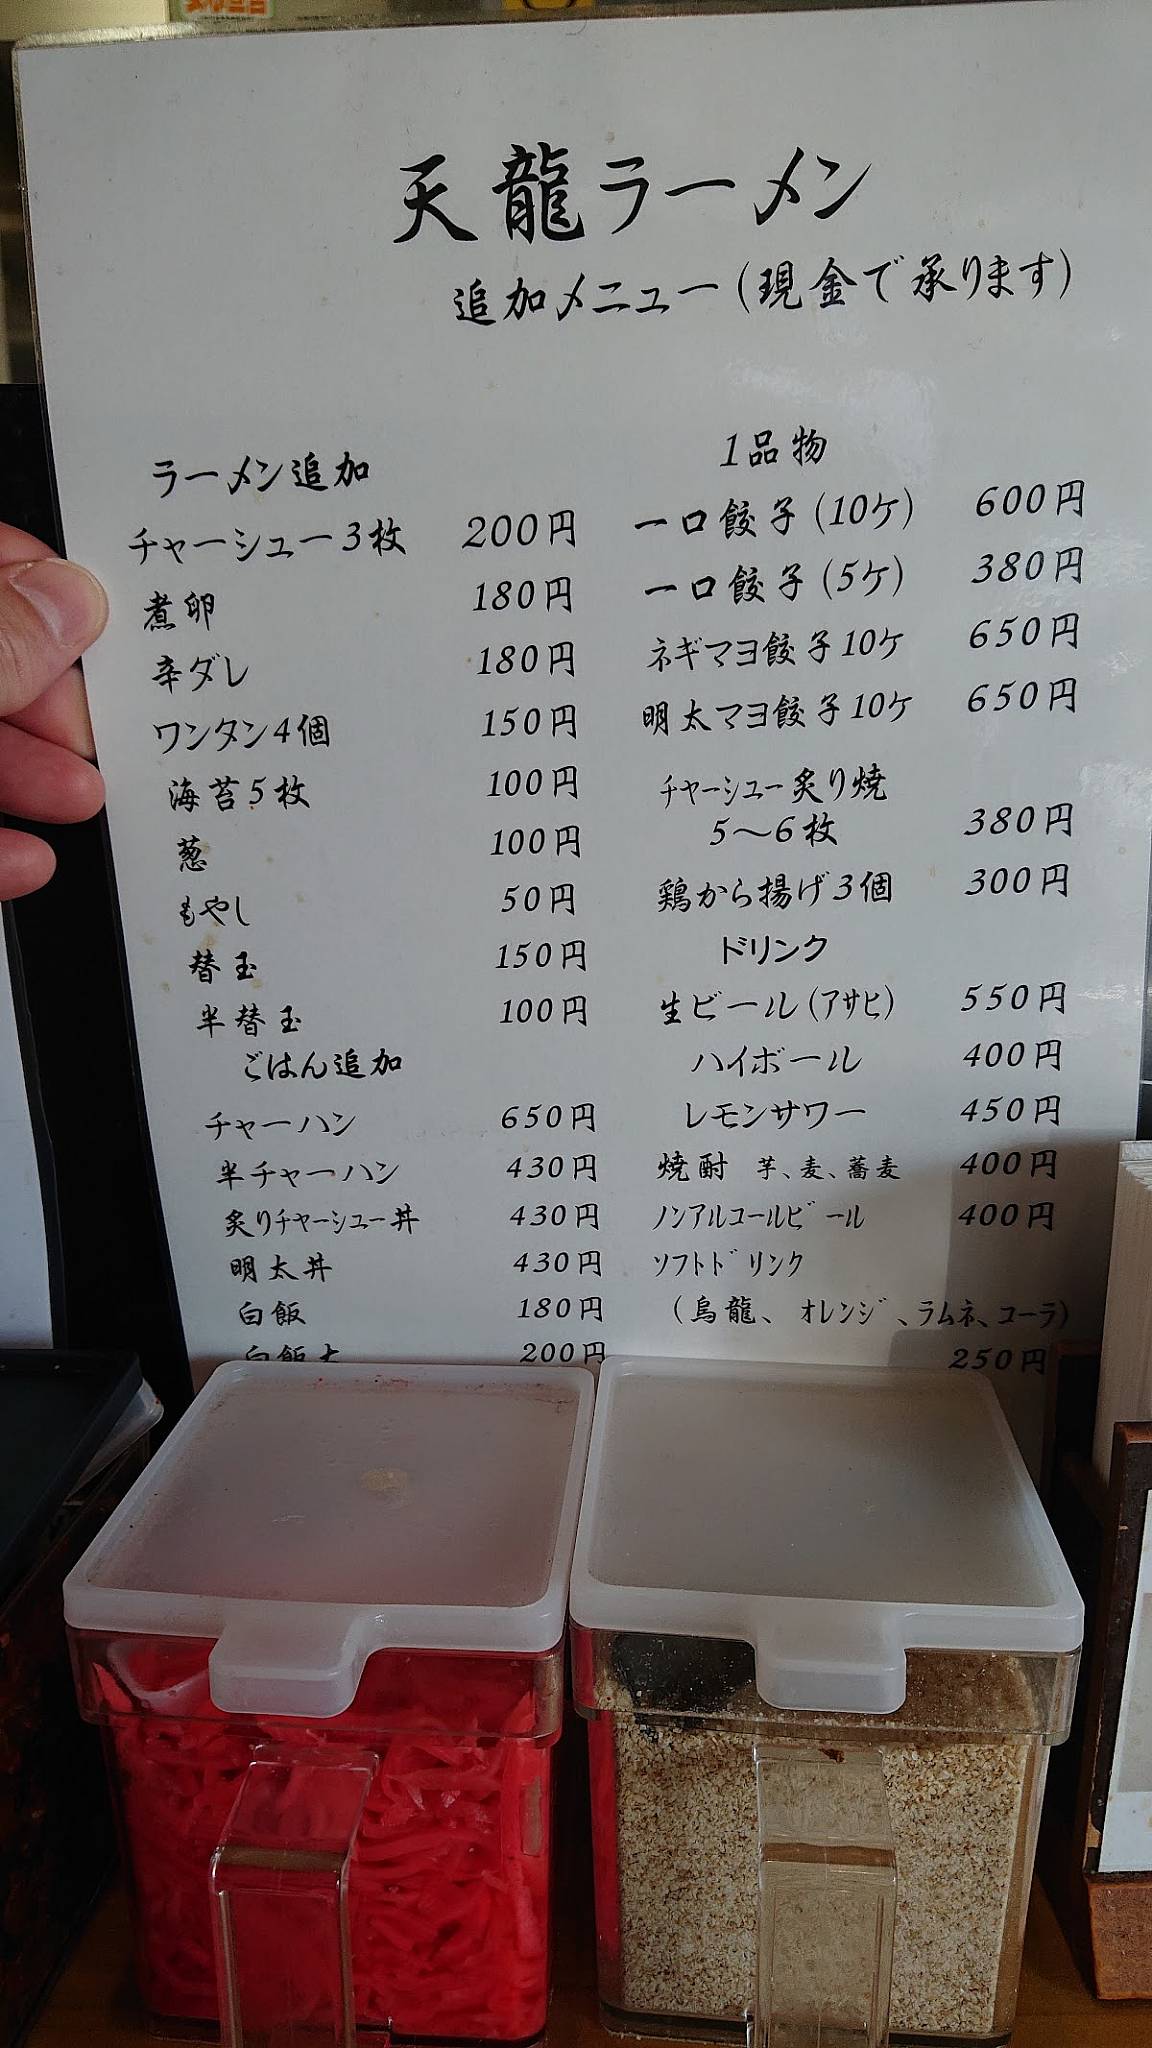 天龍ラーメン
追加メニュー(現金で承ります)
ラーメン追加
チャーシュー3枚 200円
煮卵 180円
辛ダレ 180円
ワンタン4個 150円
海苔5枚 100円
葱 100円
もやし 50円
替玉 150円
半替玉 100円
ごはん追加
チャーハン 650円
半チャーハン 430円
炙りチャーシュー丼 430円
明太丼 430円
白飯 180円
白飯大 200円
1品物
一口餃子(10ケ) 600円
一口餃子(5ケ) 380円
ネギマヨ餃子10ケ 650円
明太マヨ餃子10ケ 650円
チャーシュー炙り焼
5～6枚 380円
鶏から揚げ3個 300円
ドリンク
生ビール(アサヒ) 550円
ハイボール 400円
レモンサワー 450円
焼酎 芋、麦、蕎麦 400円
ノンアルコールビール 400円
ソフトドリンク
(烏龍、オレンジ、ラムネ、コーラ)
250円